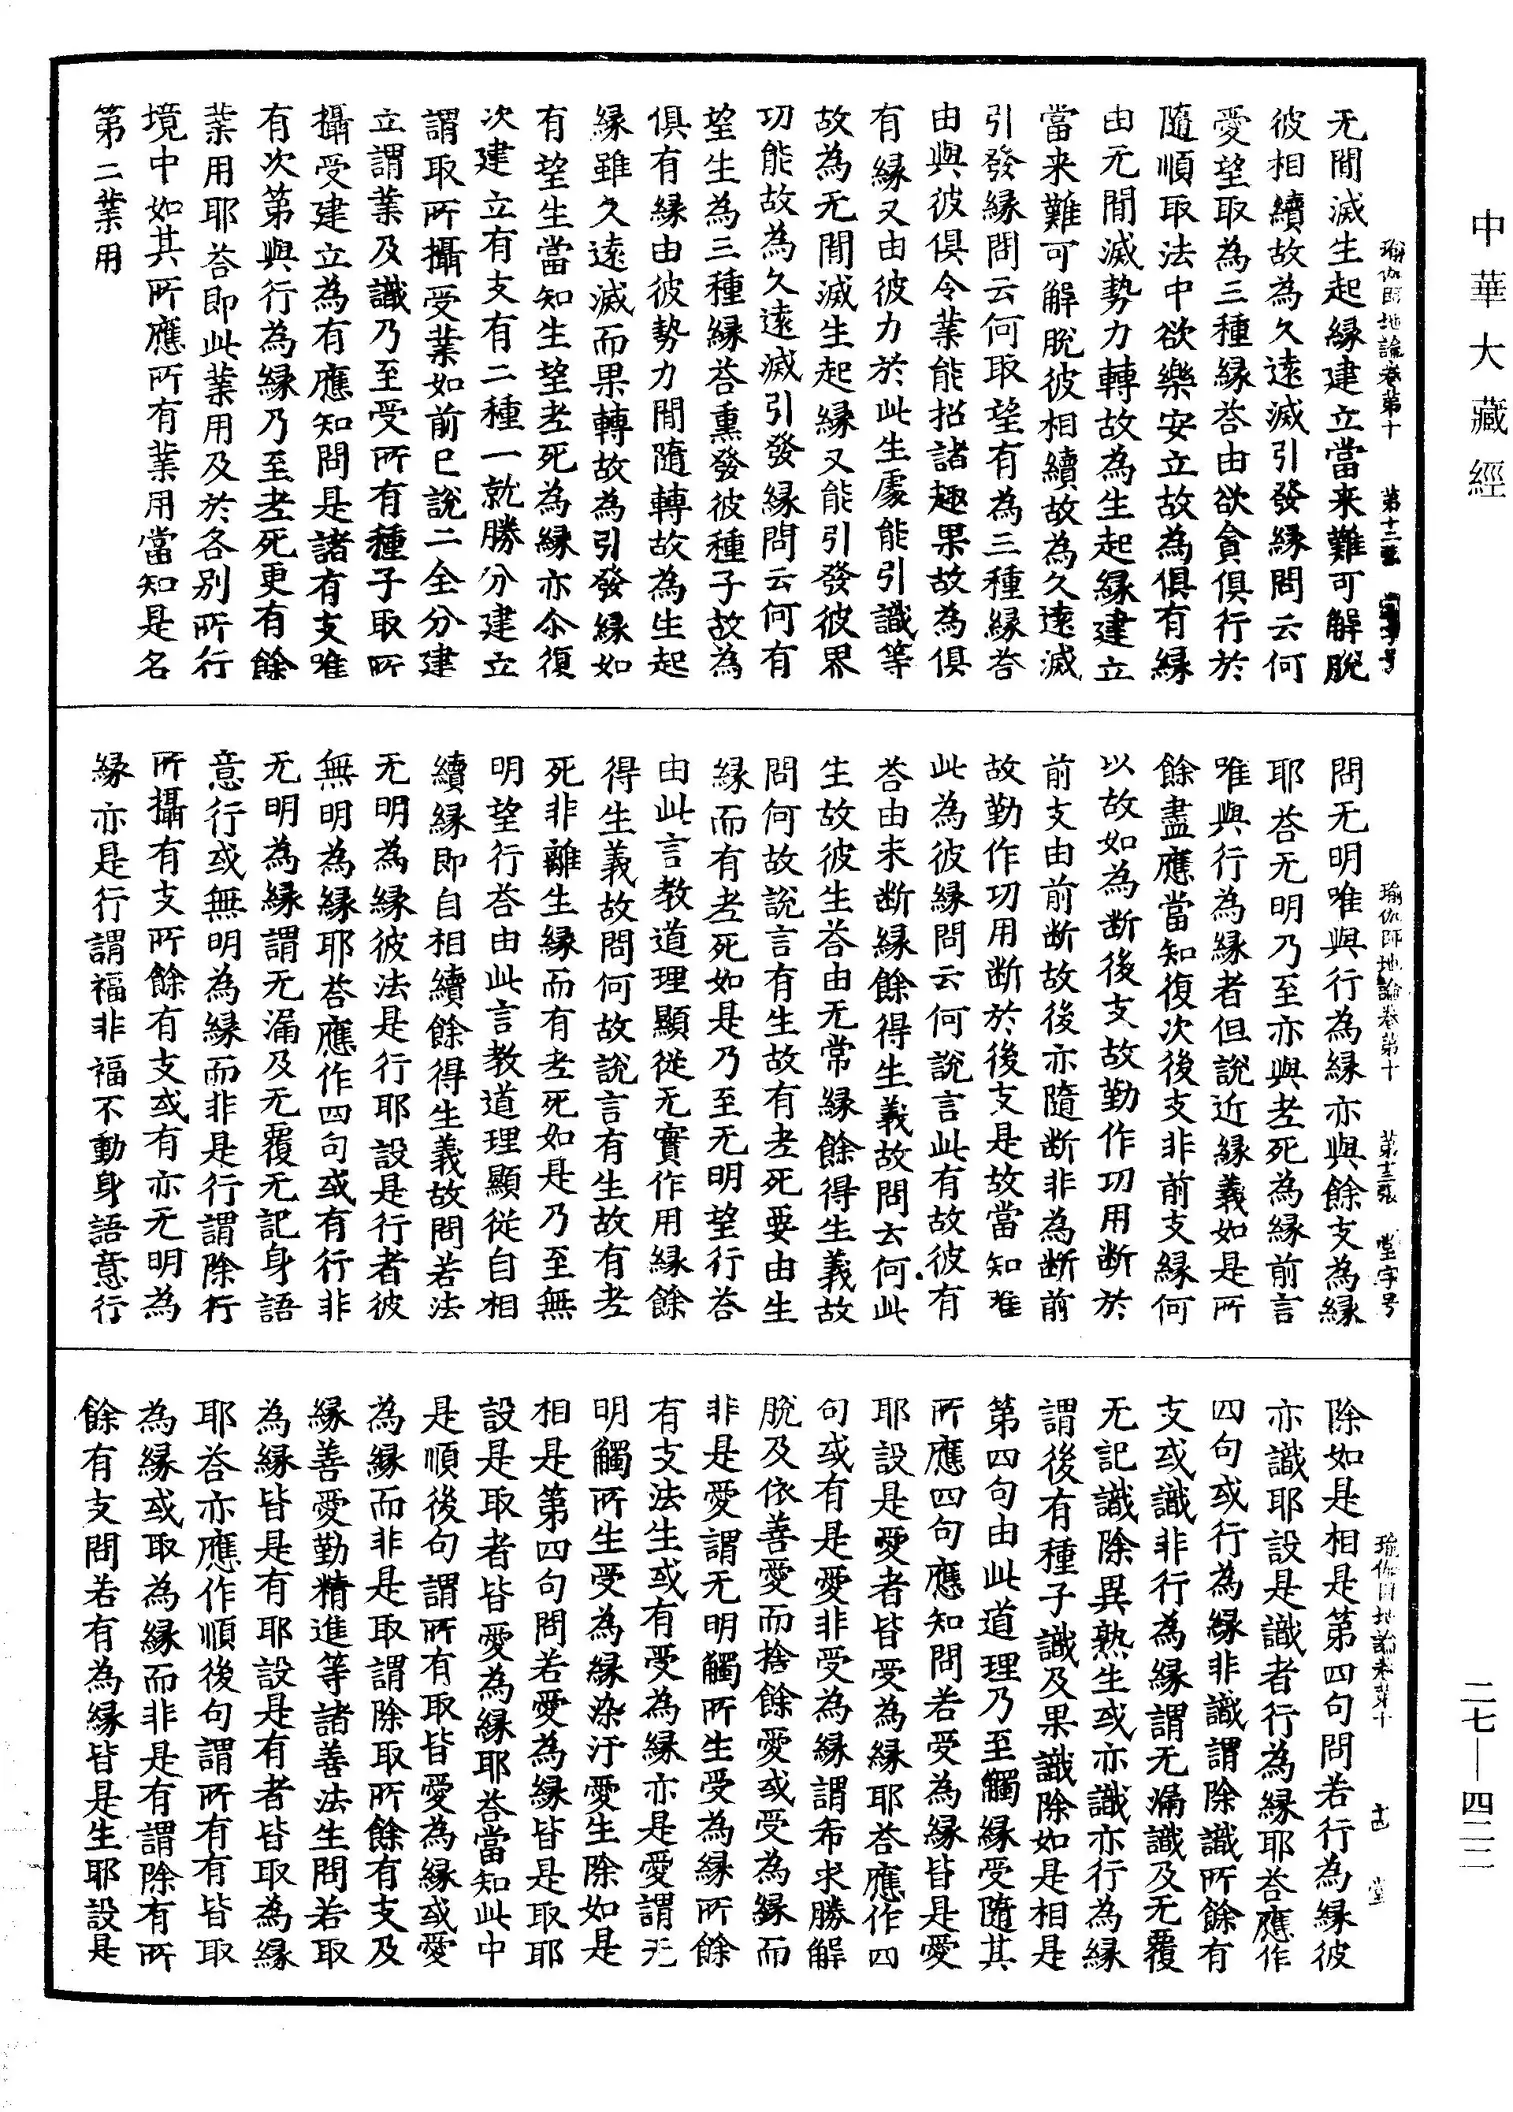 中華大藏經
瑜伽師地論卷第十 第十二張 號
无間滅生起緣建立當来難可解脫
彼相續故為久遠滅引發緣問云何
愛望取為三種緣荅由欲貪俱行於
隨順取法中欲樂安立故為俱有緣
由无間滅勢力轉故為生起緣建立
當来難可解脫彼相續故為久遠滅
引發緣問云何取望有為三種緣荅
由與彼俱令業能招諸趣果故為俱
有緣又由彼力於此生處能引識等
故為无間滅生起緣又能引發彼界
功能故為久遠滅引發緣問云何有
望生為三種緣荅熏發彼種子故為
俱有緣由彼勢力間隨轉故為生起
緣雖久遠滅而果轉故為引發緣如
有望生當知生望老死為緣亦尒復
次建立有支有二種一就勝分建立
謂取所攝受業如前已說二全分建
立謂業及識乃至受所有種子取所
攝受建立為有應知問是諸有支唯
有次第與行為緣乃至老死更有餘
業用耶荅即此業用及於各別所行
境中如其所應所有業用當知是名
第二業用
瑜伽師地論卷第十 第十三張 堂字号
問无明唯與行為緣亦與餘支為緣
耶荅无明乃至亦與老死為緣前言
唯與行為緣者但說近緣義如是所
餘盡應當知復次後支非前支緣何
以故如為斷後支故勤作功用斷於
前支由前斷故後亦隨斷非為斷前
故勤作功用斷於後支是故當知唯
此為彼緣問云何說言此有故彼有
荅由未斷緣餘得生義故問云何此
生故彼生荅由无常緣餘得生義故
問何故說言有生故有老死要由生
緣而有老死如是乃至无明望行荅
由此言教道理顯從无實作用緣餘
得生義故問何故說言有生故有老
死非離生緣而有老死如是乃至無
明望行荅由此言教道理顯從自相
續緣即自相續餘得生義故問若法
无明為緣彼法是行耶設是行者彼
無明為緣耶荅應作四句或有行非
无明為緣謂无漏及无覆无記身語
意行或無明為緣而非是行謂除行
所攝有支所餘有支或有亦无明為
緣亦是行謂福非福不動身語意行
瑜伽師地論卷第十 十四 堂
除如是相是第四句問若行為緣彼
亦識耶設是識者行為緣耶荅應作
四句或行為緣非識謂除識所餘有
支或識非行為緣謂无漏識及无覆
无記識除異熟生或亦識亦行為緣
謂後有種子識及果識除如是相是
第四句由此道理乃至觸緣受隨其
所應四句應知問若受為緣皆是愛
耶設是愛者皆受為緣耶荅應作四
句或有是愛非受為緣謂希求勝解
脫及依善愛而捨餘愛或受為緣而
非是愛謂无明觸所生受為緣所餘
有支法生或有受為緣亦是愛謂无
明觸所生受為緣染汙愛生除如是
相是第四句問若愛為緣皆是取耶
設是取者皆愛為緣耶荅當知此中
是順後句謂所有取皆愛為緣或愛
為緣而非是取謂除取所餘有支及
緣善愛勤精進等諸善法生問若取
為緣皆是有耶設是有者皆取為緣
耶荅亦應作順後句謂所有有皆取
為緣或取為緣而非是有謂除有所
餘有支問若有為緣皆是生耶設是
二七—四二二